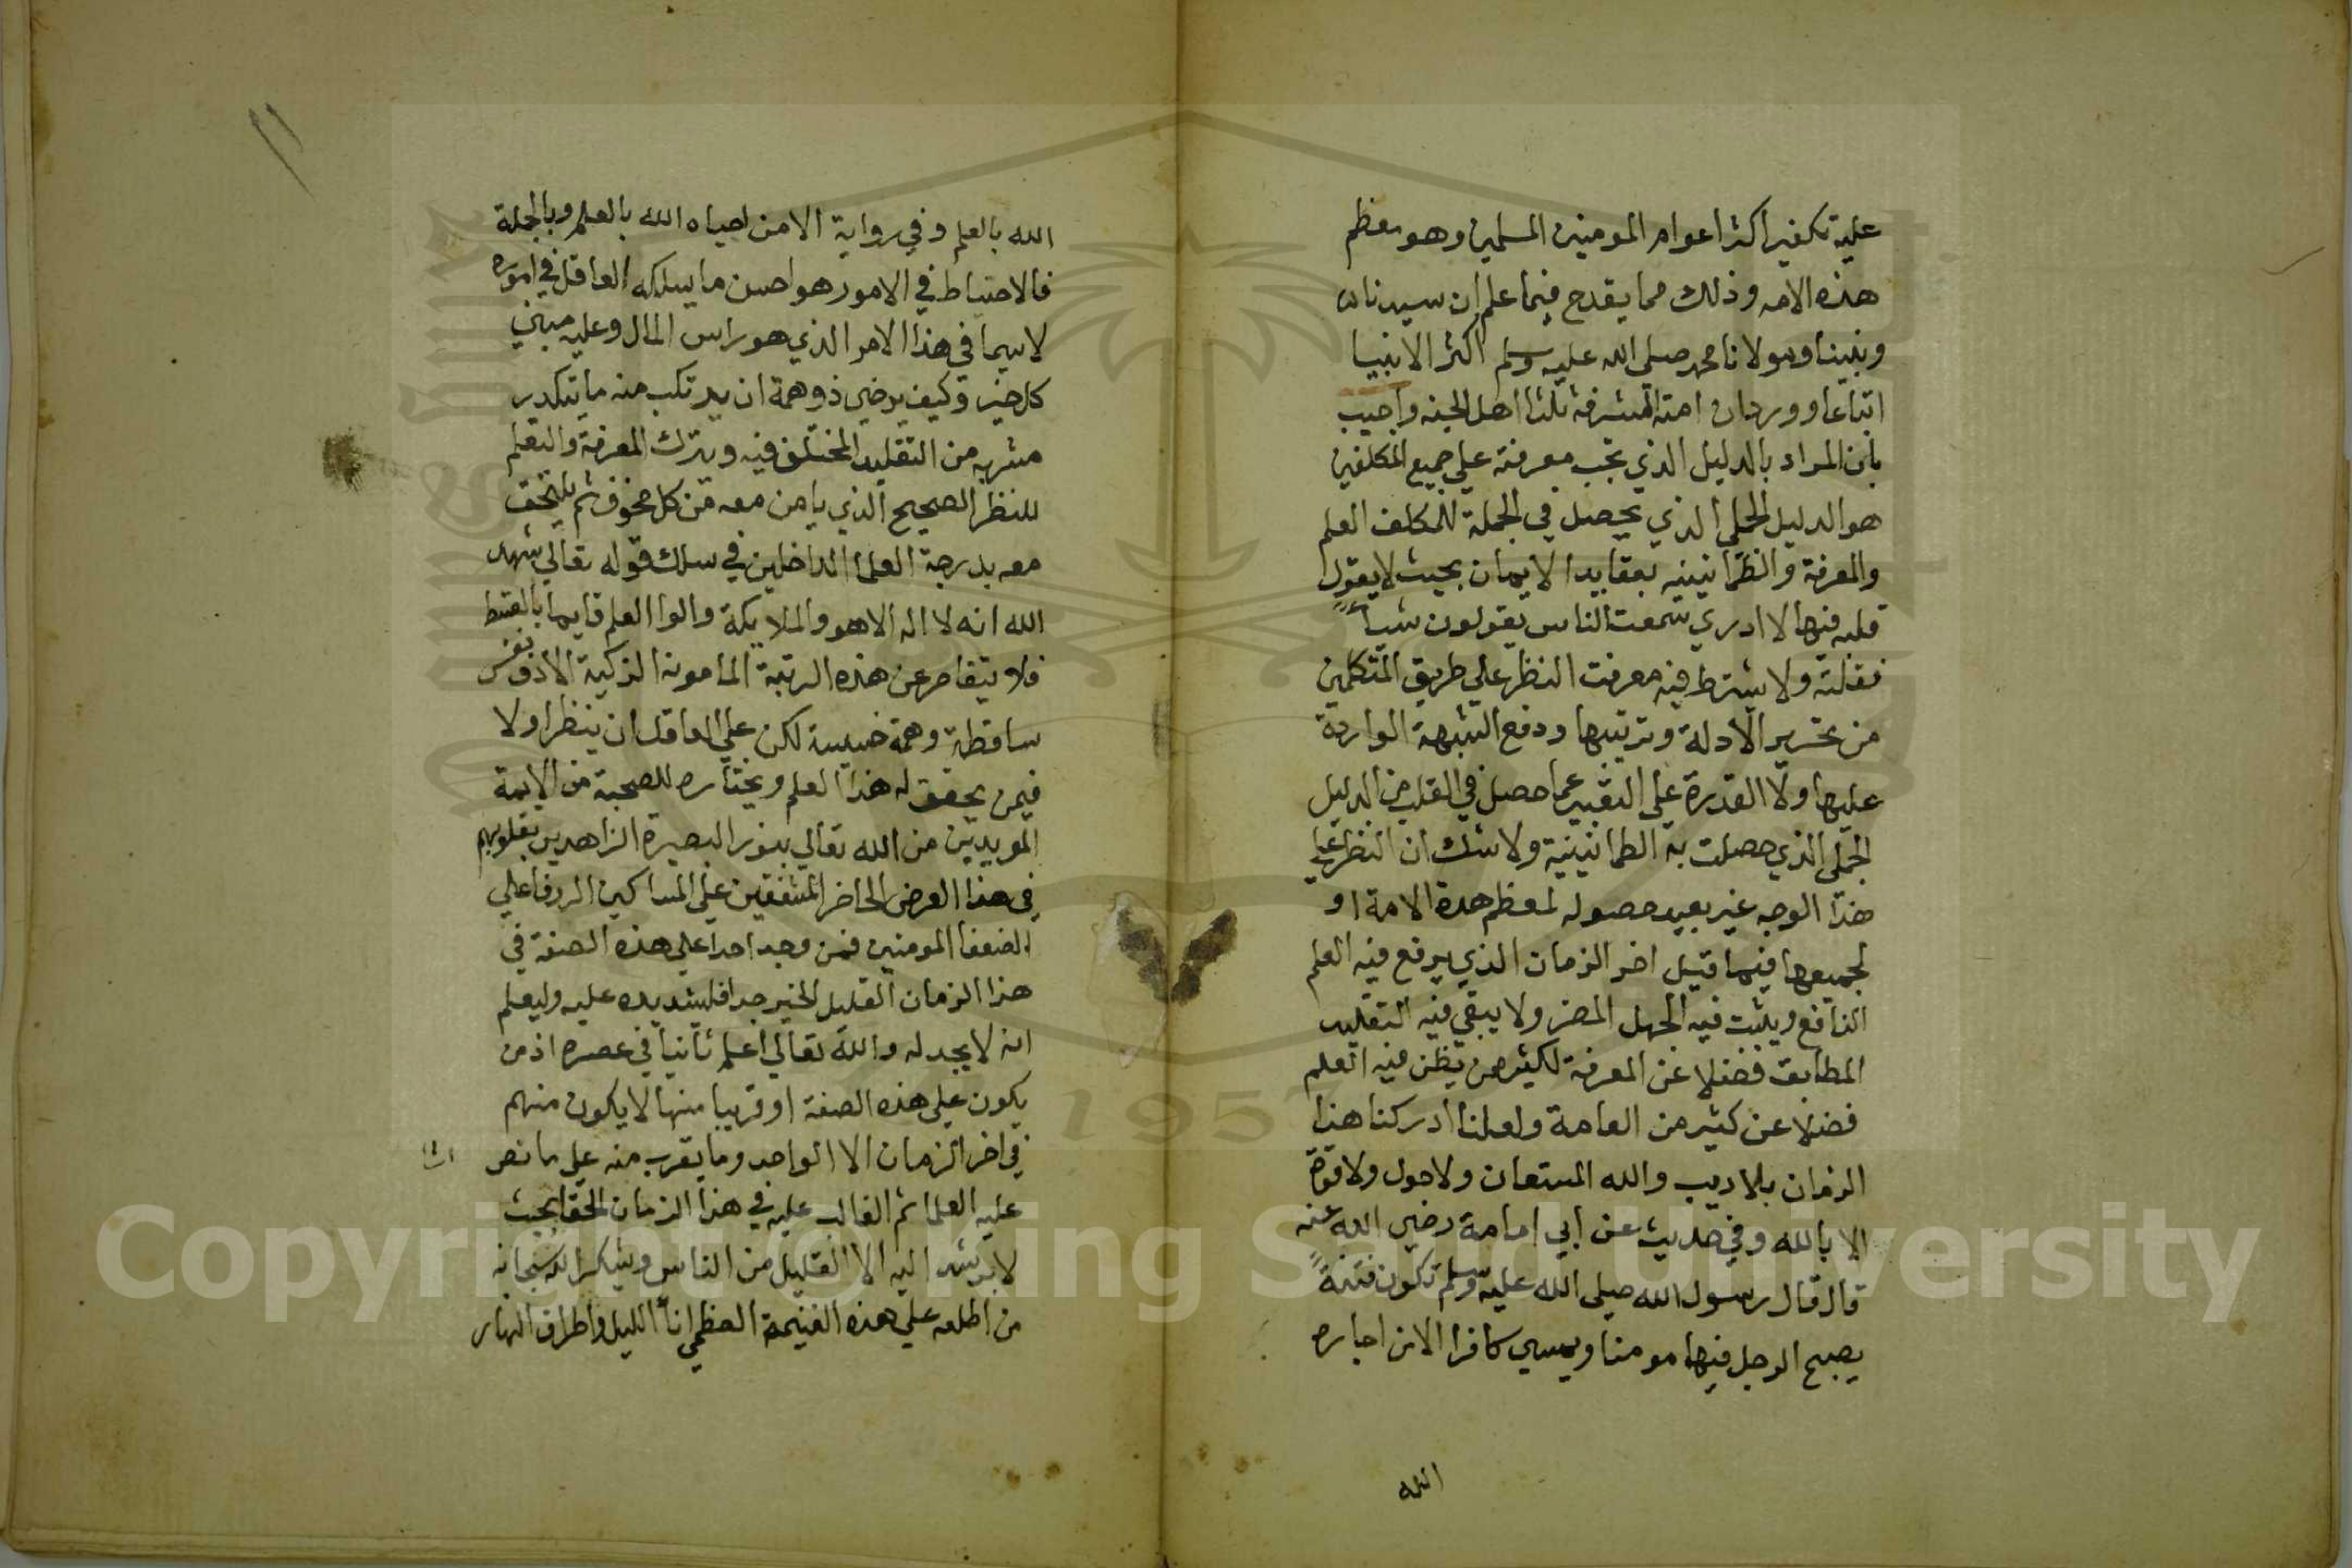 عليه تكفير اكثر اعوام المومنين المسلمين وهو معظم
هذه الامه وذلك مما يقدح فيما علم ان سيدنا
ونبينا ومولانا محمد صلى الله عليه وسلم اكثر الانبيا
اتباعا وورد ان امته المشرفة ثلثا اهل الجنه واجيب
بان المراد بالدليل الذي تجب معرفته علي جميع المكلفين
هو الدليل الجملي الذي يحصل في الجملة للمكلف العلم
والمعرفة والطمانينيه بعقايد الايمان بحيث لا يقول
قلبه فيها لا ادري سمعت الناس يقولون شيأ
فقلته ولا يشترط فيه معرفت النظر علي طريق المتكلمين
من تحرير الادلة وترتيبها ودفع الشبهة الواردة
عليها ولا القدرة علي التعبير عما حصل في القلب من الدليل
الجملي الذي حصلت به الطمانينية ولا شك ان النظر علي
هذا الوجه غير بعيد حصوله لمعظم هدة الامة او
لجميعها فيما قبل اخر الزمان الذي يرفع فيه العلم
النافع ويثبت فيه الجهل المضر ولا يبقي فيه التقليد
المطابق فضلا عن المعرفة لكثير ممن يظن فيه العلم
فضلا عن كثير من العامة ولعلنا ادركنا هذا
الزمان بلا ريب والله المستعان ولا حول ولا قوة
الا بالله وفي حديث عن ابي امامة رضي الله عنه
قال قال رسول الله صلى الله عليه وسلم تكون فتنة
يصبح الرجل فيها مومنا ويمسي كافرا الا من احياره
الله
الله بالعلم وفي رواية الا من احياه الله بالعلم وبالجملة
فالاحتياط في الامور هو احسن ما يسلكه العاقل في اموره
لا سيما في هذا الامر الذي هو راس المال وعليه مبني
كل خير وكيف يرضي ذو همة ان يرتكب منه ما يتكدر
مشربه من التقليد المختلف فيه ويترك المعرفة والتعلم
للنظر الصحيح الذي يامن معه من كل مخوف ثم يلتحق
معه بدرجة العلما الداخلين في سلك قوله تعالي شهد
الله انه لا اله الا هو والملايكة والوا العلم قايما بالقسط
فلا يتقاصر عن هذه الرتبة المامونة الزكية الا ذو نفس
ساقطة وهمة خسيسة لكن علي العاقل ان ينظر اولا
فيمن يحقق له هذا العلم ويختاره للصحبة من الايمة
المويدين من الله تعالي بنور البصيرة الزاهدين بقلوبهم
في هذا العرض الحاضر المشفقين علي المساكين الروفا علي
الضعفا المومنين فمن وجد احدا علي هذه الصفة في
هذا الزمان القليل الخير جدا فليشد يده عليه وليعلم
انه لا يجد له والله تعالي اعلم ثانيا في عصره اذ من
يكون علي هذه الصفة او قريبا منها لا يكون منهم
في اخر الزمان الا الواحد وما يقرب منه علي ما نص
عليه العلما ثم الغالب عليه في هذا الزمان الخفا بحيث
لا يرشد اليه الا القليل من الناس ويشكر الله سبحانه
من اطلعه علي هذه الغنيمة العظمي انأ الليل واطراف النهار
١١
Copyright © King Saud University
1957